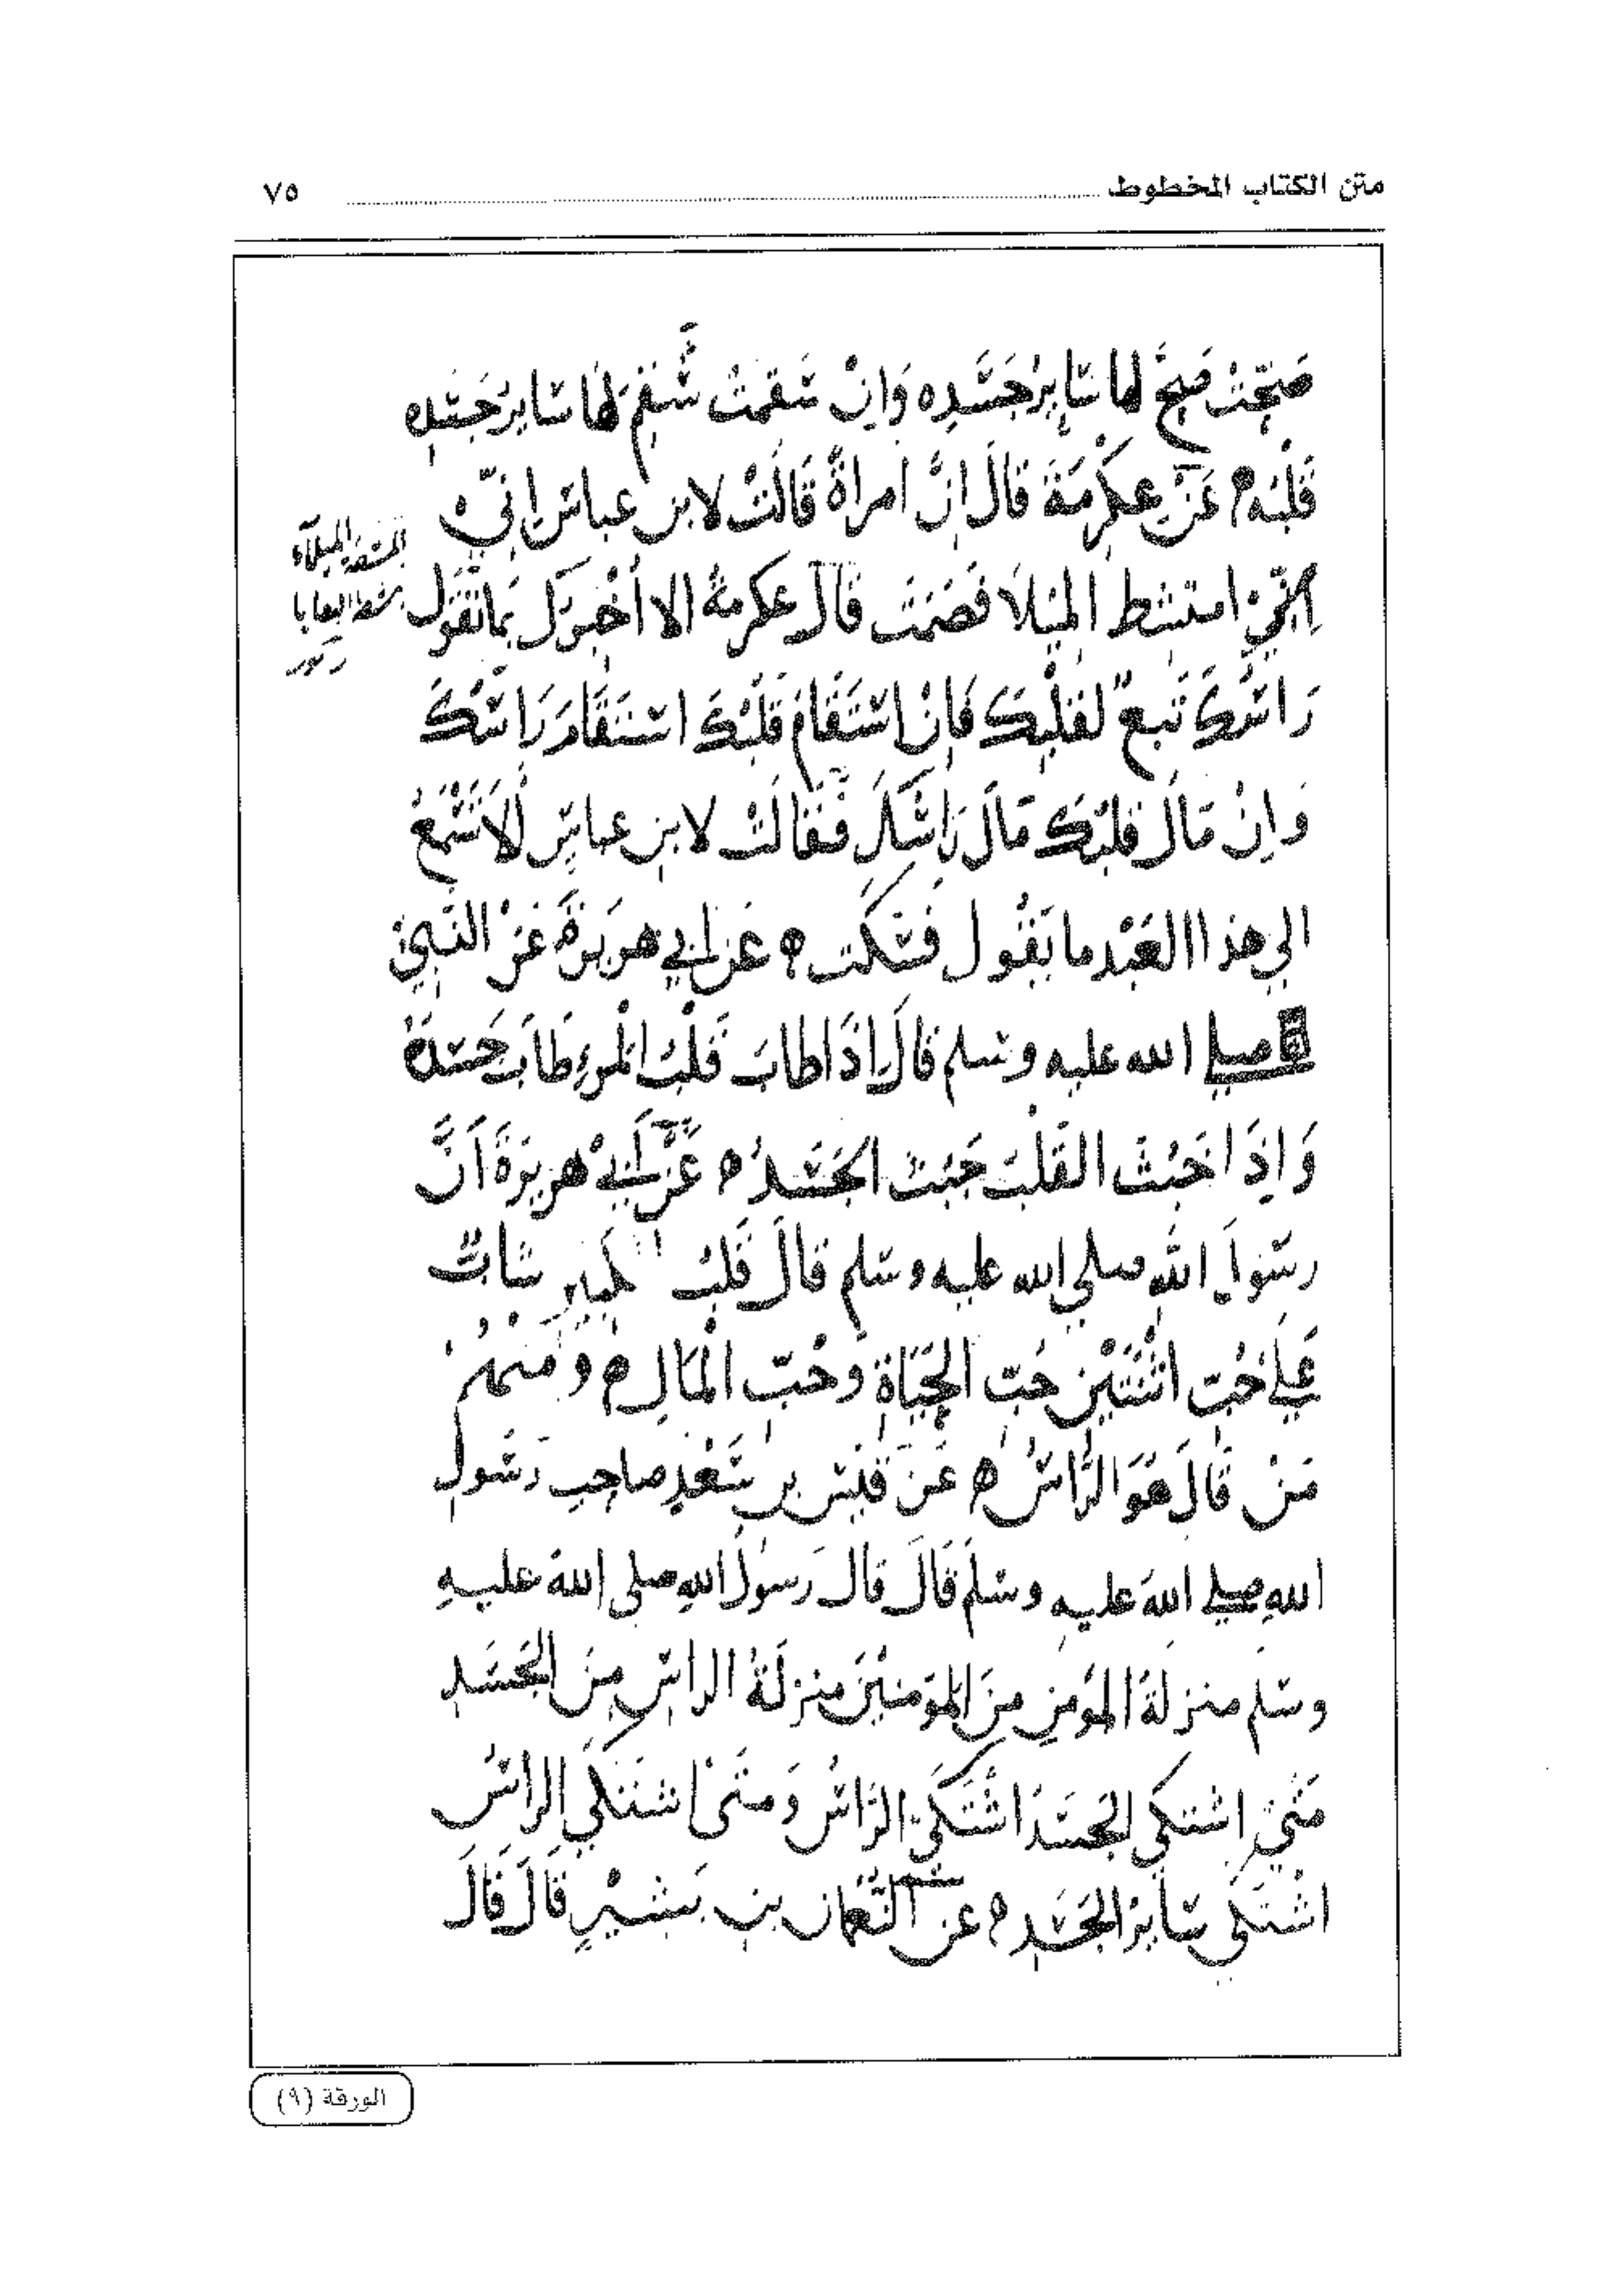 متن الكتاب المخطوط ٧٥
صَحّتْ صَحَّ لها سَايرُ جَسَدِه وَاِنْ سَقِمَتْ سَقِمَ لَهَا سَايرُ جَسَدِه
قَلْبُه ه عَنْ عِكْرِمَةَ قالَ اِنَّ امراةً قَالَتْ لابن عباسٍ اِنّي
امتشط الميْلَا فَصَمَتَ قَالَ عكرمةُ الا أُخْبِرُكِ بمَا تَقُولُ
رَاسُكِ تَبَعٌ لقَلْبِكِ فَاِنْ اسْتَقَامَ قَلْبُكِ اسْتَقَامَ رَاسُكِ
وَاِنْ مَالَ قلبُكِ مَالَ رَاسُكِ فَقَالَتْ لابن عباسٍ اَلَا تَسْمَعُ
الى هذا العَبْد ما يَقُول فَسَكت ه عَن ابي هريرَةَ عَنْ النَّبي
صلى الله عليه وسلم قالَ اِذَا طابَ قَلْبُ المرءِ طَابَ جَسَدُهُ
وَاِذَا خَبُثَ القَلْبُ خَبُثَ الجَسَدُ ه عَنْ اَبي هريرَةَ اَنَّ
رسُولَ اللهِ صلى الله عليه وسلم قالَ قَلْبُ الكبير شابٌّ
عَلى حُبّ اثْنَتَيْن حُبّ الحَيَاةِ وَحُبّ الْمَالِ ه وَمنهُمْ
مَنْ قَالَ هُوَ الرَّاسُ ه عَنْ قَيْس بن سَعْدٍ صاحِبِ رَسُولِ
اللهِ صلى اللهَ عليه وسَلّمَ قَالَ قَال رَسُولُ اللهِ صلى اللهُ عليهِ
وسَلم منزلةُ المؤمن مِنَ المؤمنيْنَ منزلَةُ الراسِ مِنَ الجَسَدِ
مَتَى اشتكى الجَسَدُ اشْتَكَى الرَّاسُ وَمتَى اشتَكى الراسُ
اشْتَكَى سَايرُ الجَسَدِ ه عَن النُّعْمَان بن بَشيْرٍ قَالَ قَالَ
الميلآء
البغايا
الورقة (٩)